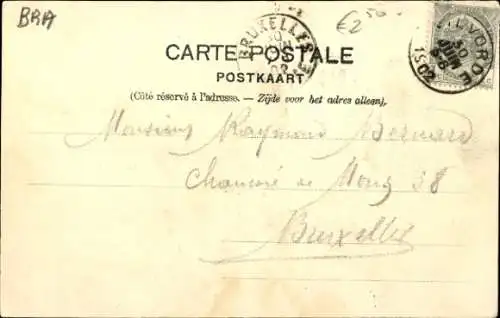 BRA
€2,50
BRUXELLES
30
JUIN
VILVORDE
30
JUIN
1902
CARTE POSTALE
POSTKAART
(Côté réservé à l'adresse. — Zijde voor het adres alleen).
Monsieur Raymond Bernard
Chaussée de Mons 38
Bruxelles